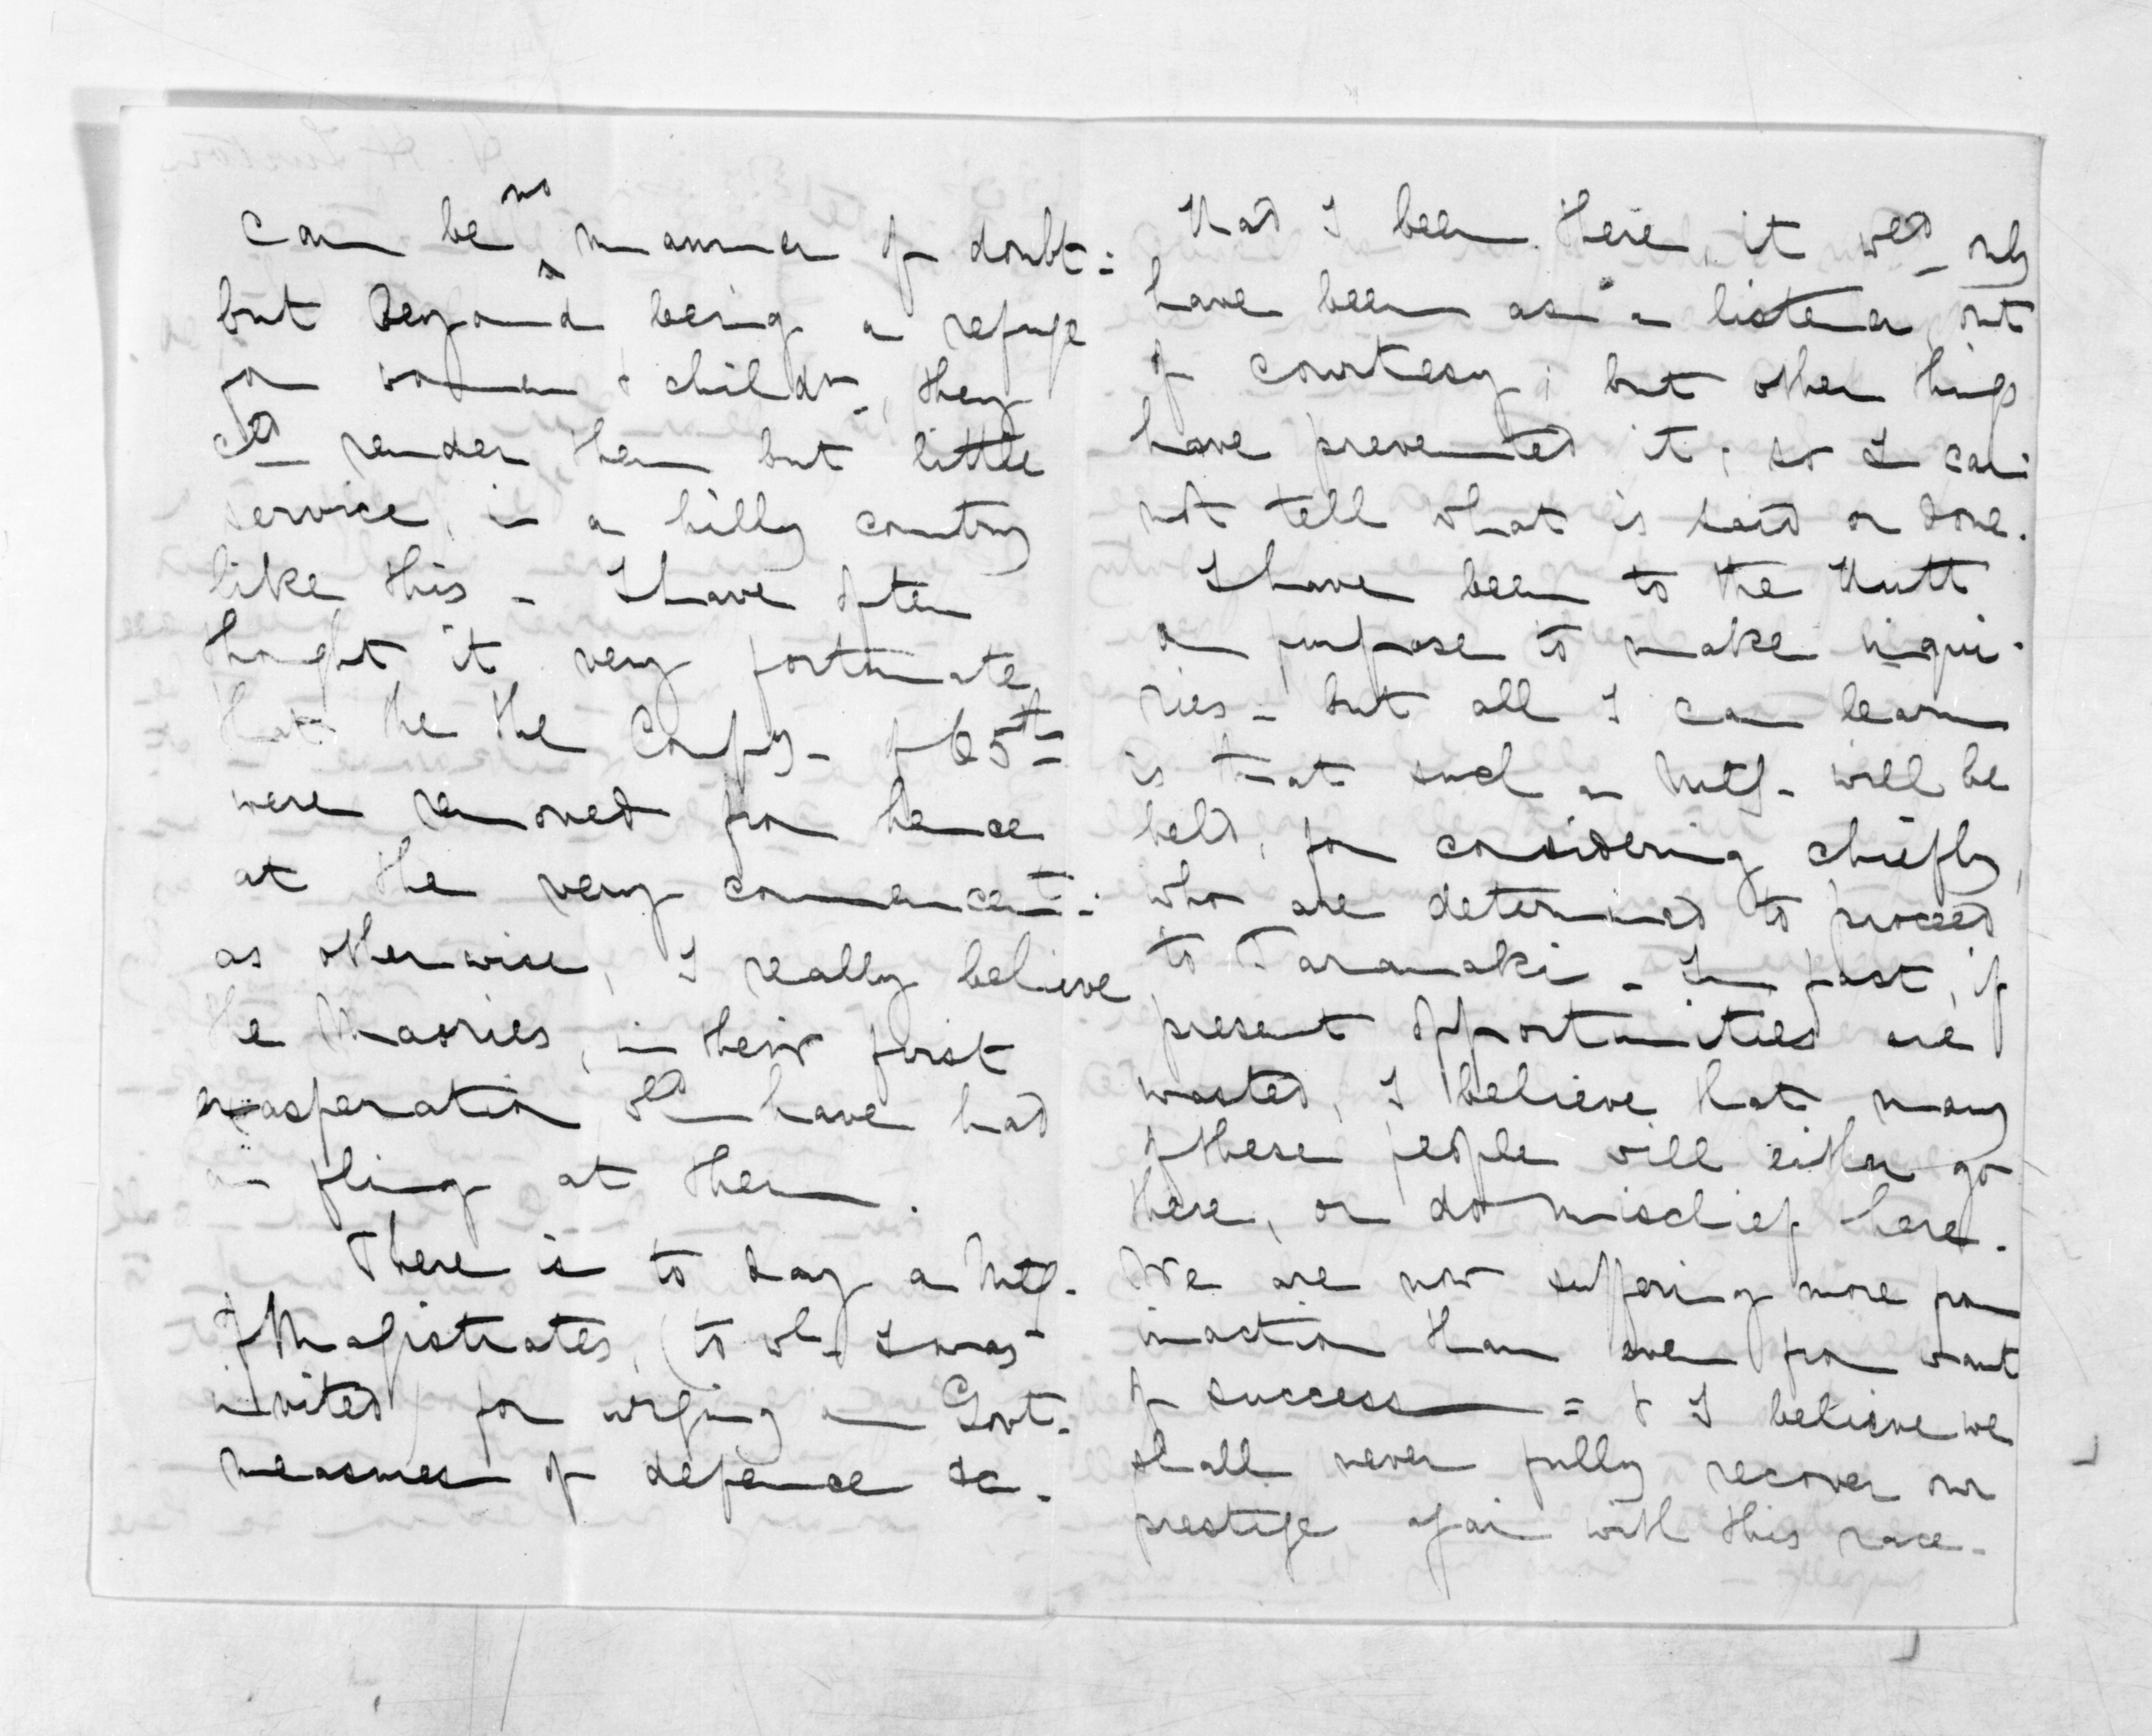 can be no manner of doubt:
but beyond being a refuge
for women & childn., they
cd render them but little
service, in a hilly country
like this - I have often
thought it very fortunate
that the the Compy- of 65th
were removed from hence
at the very commencet:
as otherwise, I really believe
the Maories, in their first
exasperation wd have had
a fling at them.
There is to day a Mtg.
of Magistrates, (to wh. I was
invited) for urging on Govt.
measures of defence &c.
Had I been there, it wed only
have been as a listener, out
of courtesy; but other things
have prevented it; so I can:
not tell what is said or done.
I have been to the Hutt
on purpose to make inqui-
ries - but all I can learn
is that such a Mtg. will be
held, for considering chiefly,
who are determined to proceed
to Taranaki - In fact, if
present opportunities are
wasted, I believe that many
of these people will either go
there, or do mischief here.
We are now suffering more from
inaction than even from want
of success = & I believe we
shall never fully recover our
prestige again with this race.